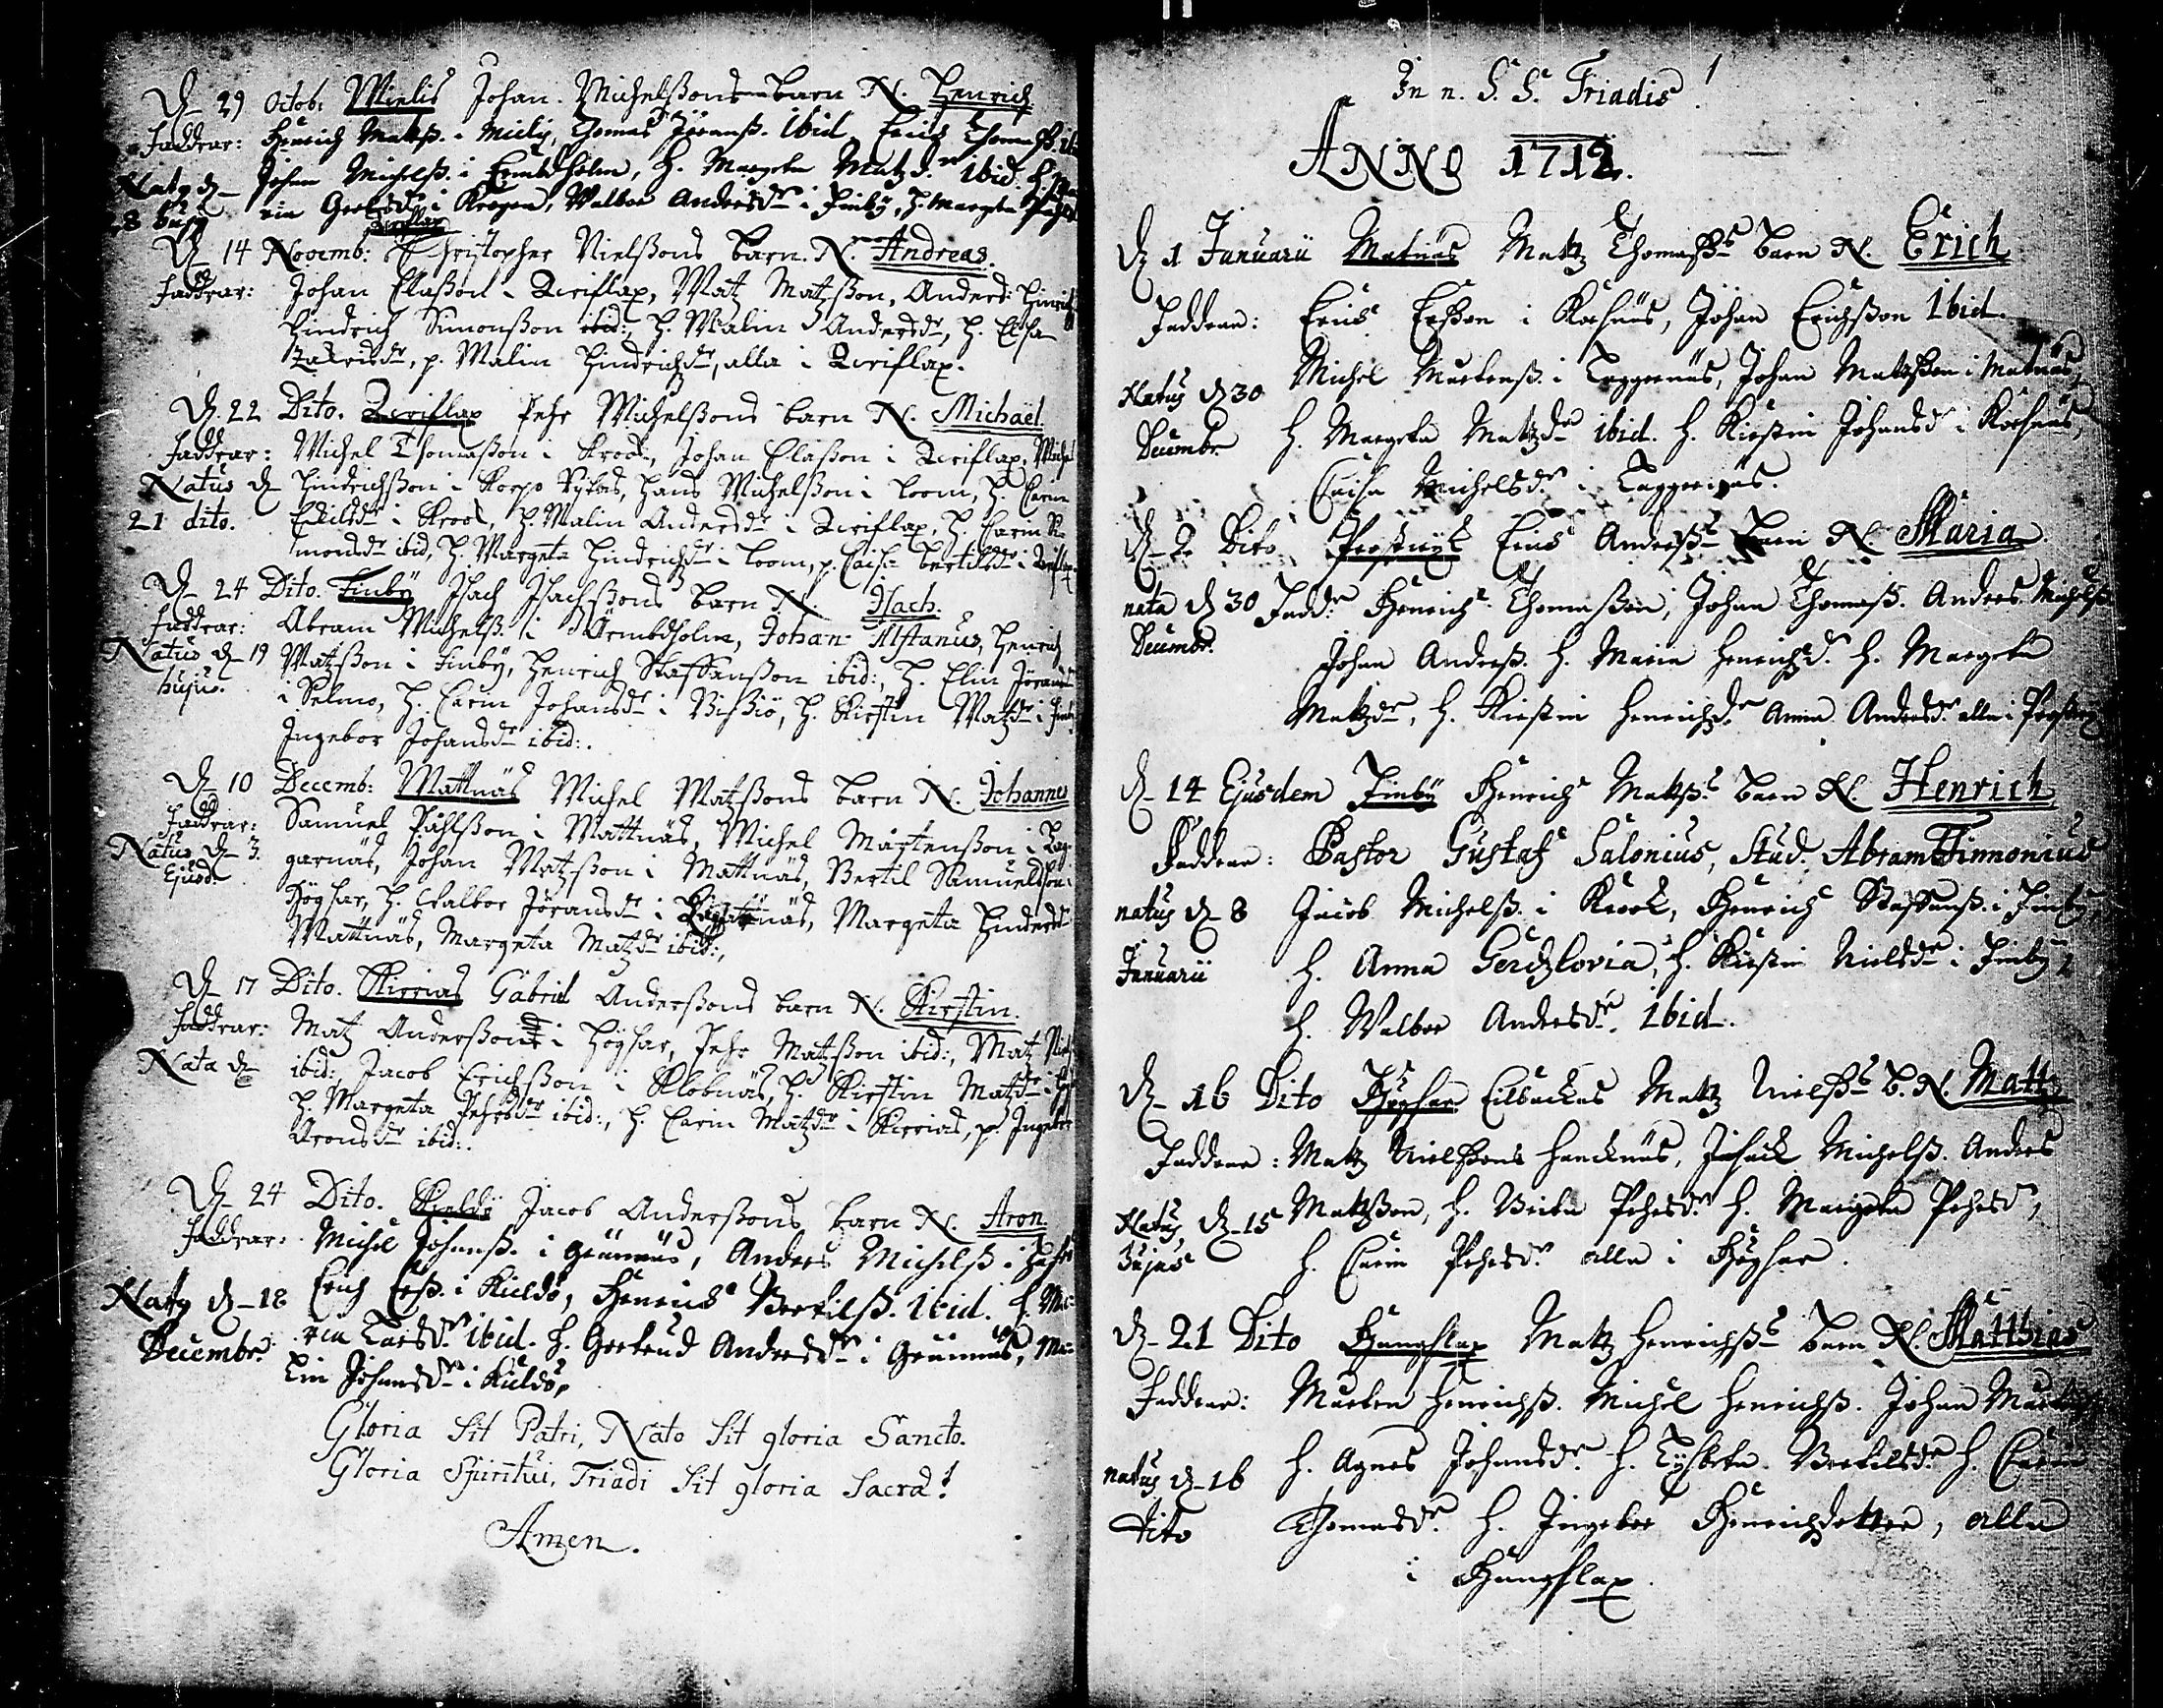 D. 29 Octob: Mielis Johan Michelßons barn N. Henrich
Faddrar: Henrich Matß. i Mielis, Thomas Jöranß. ibid. Erich Thomaß. ibid
Natq d. Johan Michelß. i Ermholm, H. Margeta Matzdr ibid. H.
28 hujq Walbor Andersdr i Finby, H. Margeta
Qviflax
D. 14 Novemb: Christopher Nielßons barn. N. Andreas.
Faddrar: Johan Claßon i Qviflax, Matz Matzson, Anders
Hindrich Simonßon ibid:, H. Malin Andersdr, H. Elsa
p. Malin Hindrichdr, alla i Qviflax.
D. 22 Dito. Qviflax Pehr Michelßons barn N. Michaël.
Faddrar: Michel Thomaßon i Krook, Johan Claßon i Qviflax,
Natus d. Hindrichßon i Korpo Kyrkos, Hans Michelßon i Loom, H. Carin
21 dito. i Krook, H. Malin Andersdr i Qviflax, H. Carin Si-
monsdr ibid, H. Margeta Hindrichdr i Loom, p. Caisa Bertilsdr i
D. 24 Dito. Finby Isach Isachßons barn N. Isach.
Faddrar: Abram Michelß. i Ermholm, Johan Alstanus, Henrich
Natus d. 19 Matzßon i Finby, Henrich Staffanßon ibid:, H. Elin
hujus. i Selmo, H. Carin Johansdr i H. Kirstin Matzdr i
Ingebor Johansdr ibid:.
D. 10 Decemb: Mattnäs Michel Matzßons barn N. Johannes
Faddrar: Samuel Påhlßon i Mattnäs, Michel Mårtenßon i Tag-
Natus d. 3. garnäs, Johan Matzßon i Mattnäs, Bertil Samuelßon i
Ejusd. Högsar, H. Walbor Jöransdr i Margeta
Mattnäs, Margeta Matzdr ibid:,
D. 17 Dito. Skirrias Gabriel Anderßons barn N. Kirstin.
Faddrar: Matz Anderßon i Högsar, Pehr Matzßon ibid:, Matz
Nata d. ibid:, Jacob Erichßon i Klobnäs, H. Kirstin Matzdr i
H. Margeta Pehrsdr ibid:, H. Carin Matzdr i Skirrias, p. Ingebor
Aronsdr ibid:.
D. 24 Dito. Kieldö Jacob Anderßons barn N. Aron.
Faddrar: Michel Johanß. i Grännäs, Anders Michelß. i
Natq d. 18 Erich Erß. i Kieldö, Henrich Bertilß. ibid. H. Ma-
Decembr. ria Larsdr. ibid. H. Gertrud Andersdr i Grännäs, Ma-
lin Johansdr i Kieldö,
Gloria Sit Patri, Nato Sit gloria Sancto.
Gloria Spiritui, Triadi Sit gloria Sacra!
Amen.
In n. S. S. Triadis!
ANNO 1712.
D. 1 Januarii Matnäs Matz Thomaßs barn N. Erich
Faddrar: Erich Erßon i Korsnäs, Johan Erichßon ibid.
Natus d. 30 Michel Mårtenß. i Taggernäs, Johan Matzßon i Matnäs,
Decembr. H. Margeta Matzdr ibid. H. Kirstin Johansdr i Korsnäs,
Caisa Michelsdr. i Taggernäs.
D. 2 Dito Prostvijk Erich Anderß. barn N. Maria
nata d. 30 Faddr. Henrich Thomaßon, Johan Thomaß. Anders Michelß.
Decembr. Johan Anderß. H. Maria Henrichdr. H. Margeta
Matzdr, H. Kirstin Henrichdr. Anna Andersdr. alla i Prostvijk
D. 14 Ejusdem Finby Henrich Matzß. barn N. Henrich
Faddrar: Pastor Gustaf Salonius, Stud. Abram Finnonius
natus d. 8 Jacob Michelß. i Krook, Henrich Staffanß. i Finby,
Januarii H. Anna Gerdzlovia, H. Kirstin Nielsdr i Finby,
H. Walbor Andersdr. ibid.
D. 16 Dito Högsar Eilbackas Matz Nielß. b. N. Matz
Faddrar: Matz Nielßons Hancknäs, Isack Michelß. Anders
Natus d. 15 Matzßon, H. Brita Pehrsdr. H. Margeta Pehrsdr,
Hujus H. Carin Pehrsdr. alla i Högsar.
D. 21 Dito Hungflax Matz Henrichß. barn N. Matthias
Faddrar: Mårten Henrichß. Michel Henrichß. Johan Mårtenß
natus d. 16 H. Agnes Johansdr. H. Lisbeta Bertilsdr. H. Carin
dito Thomasdr. H. Ingebor Henrichdotter, alla
i Hungflax.